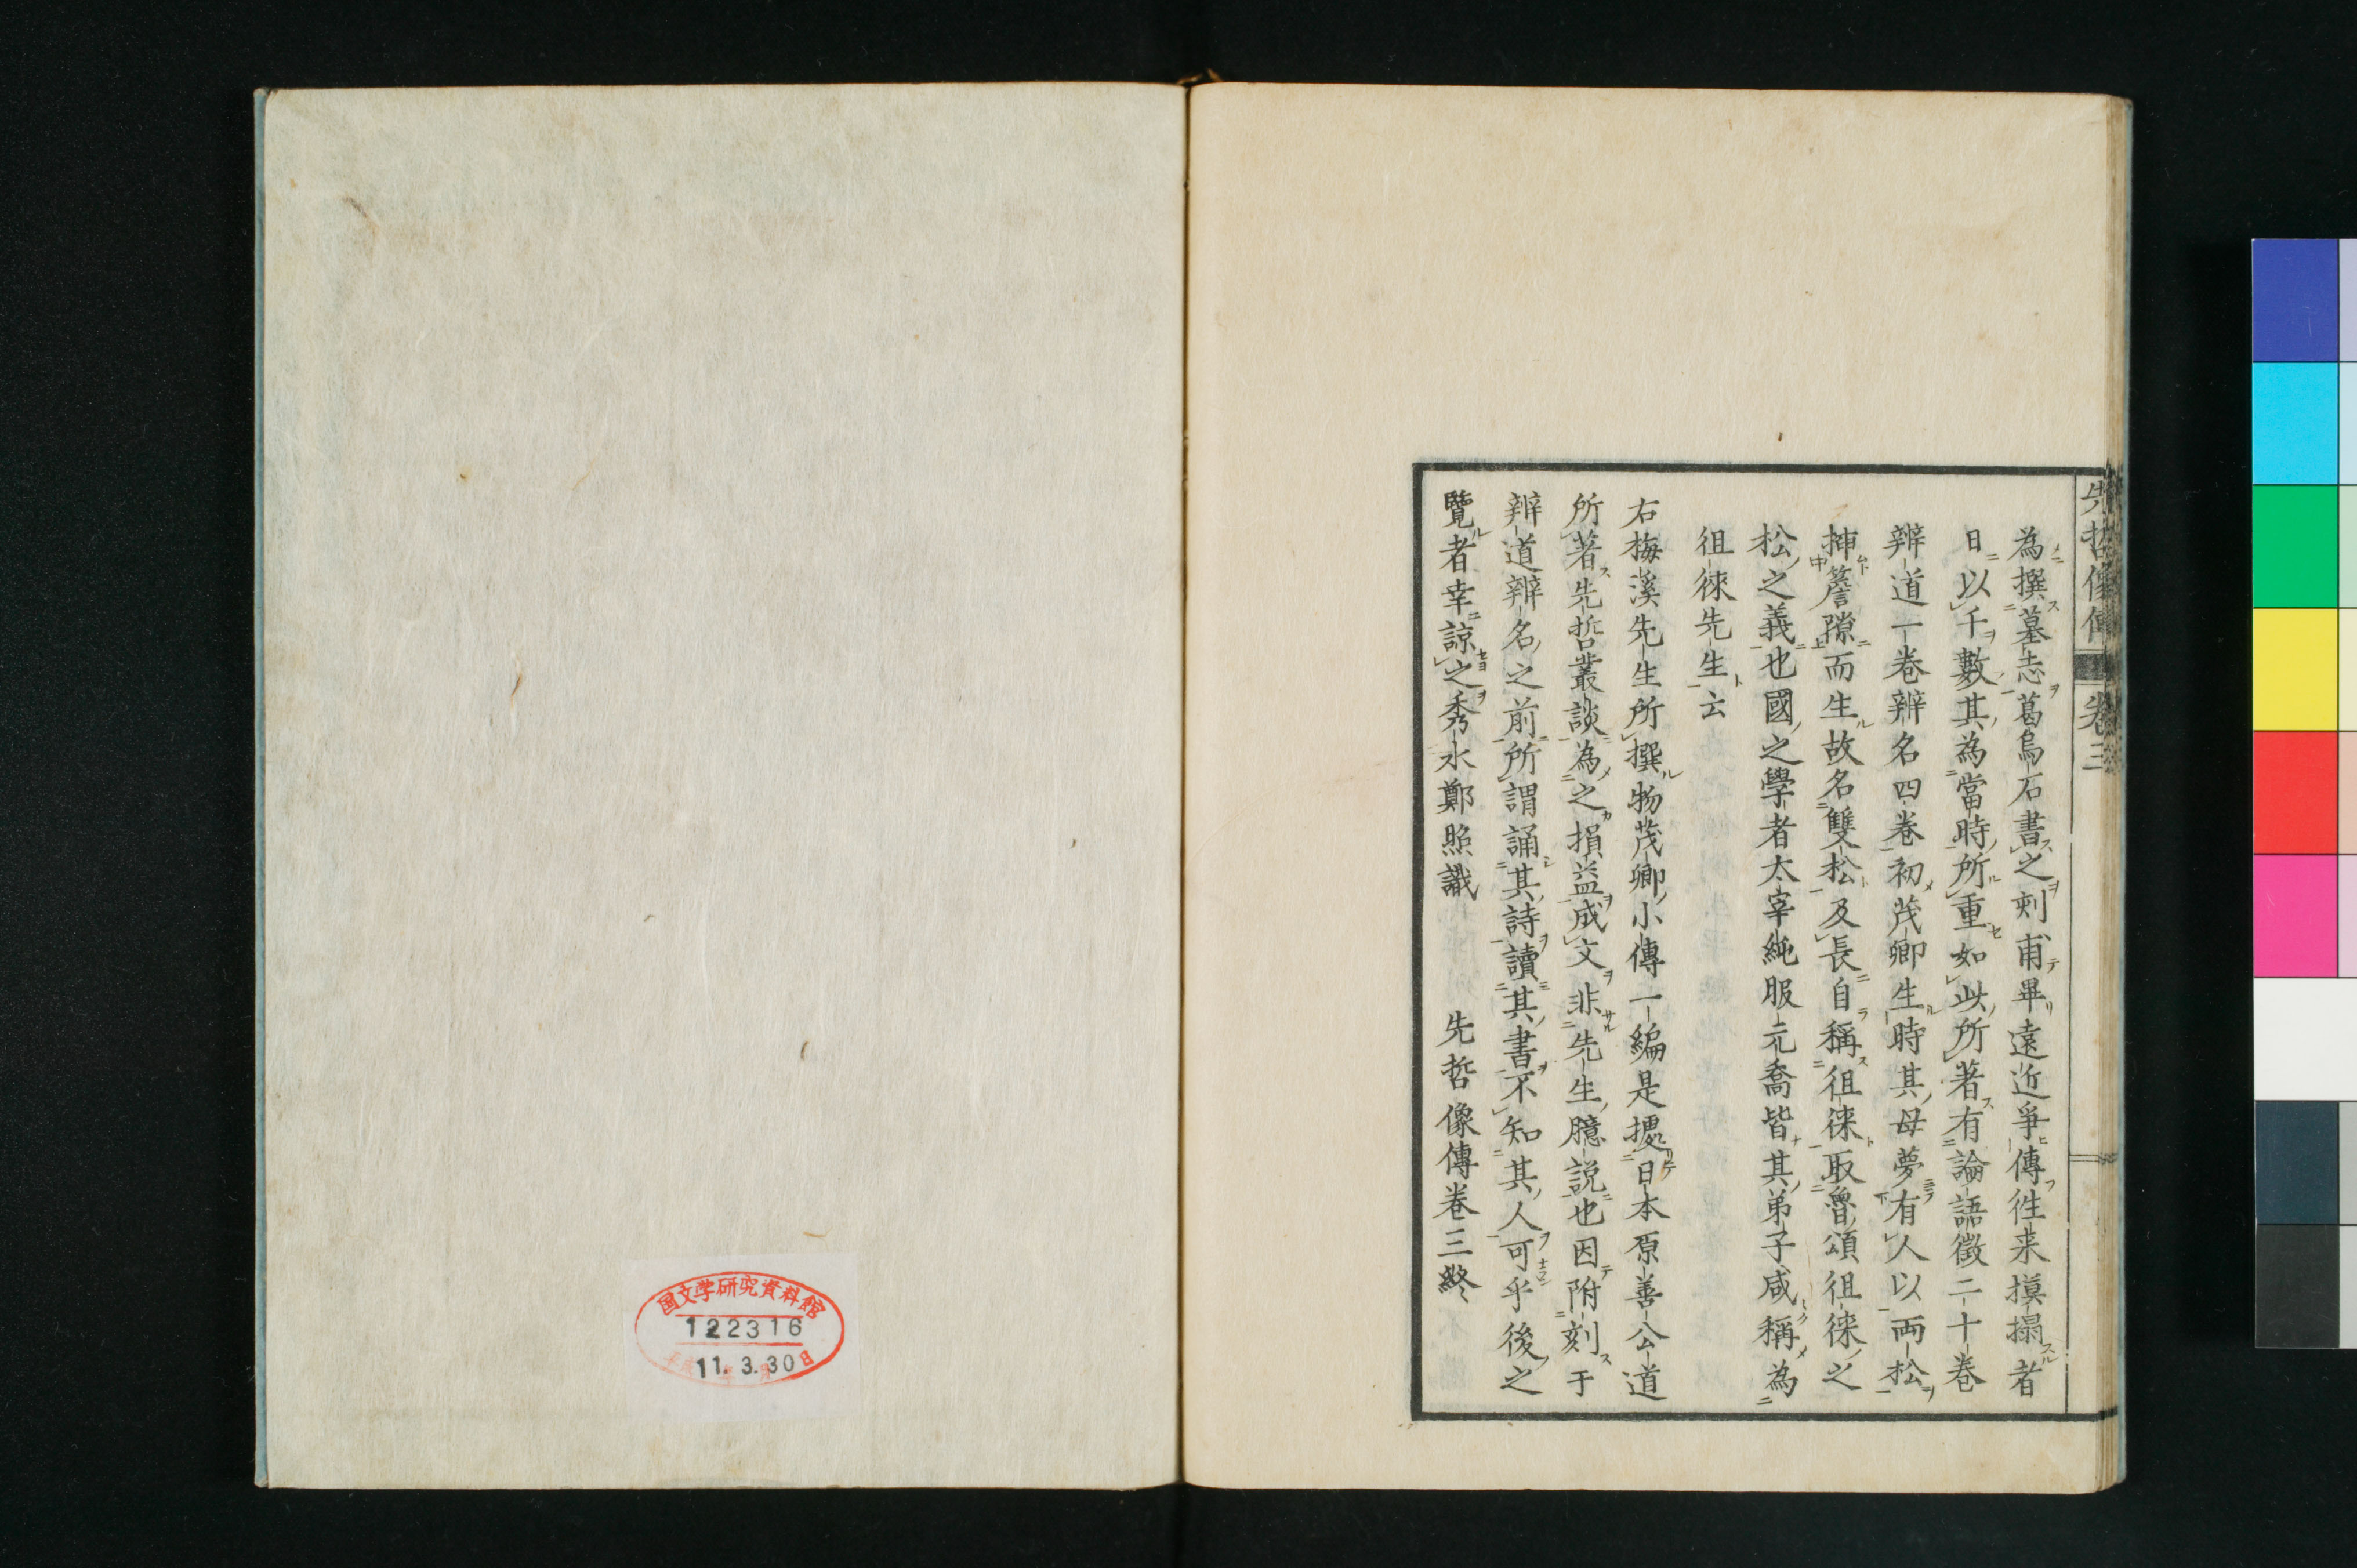 先哲像傳 卷三
為撰墓志葛烏石書之刺甫畢遠近爭傳徃来摸搨者
日以千數其為當時所重如此所著有論語徵二十卷
辨道一卷辨名四卷初茂卿生時其母夢有人以両松
挿簷隙而生故名雙松及長自稱徂徠取魯頌徂徠之
松之義也國之學者太宰純服元喬皆其弟子咸稱為
徂徠先生云
右梅溪先生所撰物茂卿小傳一編是據日本原善公道
所著先哲叢談為之損益成文非先生臆説也因附刻于
辨道辨名之前所謂誦其詩讀其書不知其人可乎後之
覽者幸諒之秀水鄭照識 先哲像傳卷三終
国文学研究資料館
122316
11.3.30日